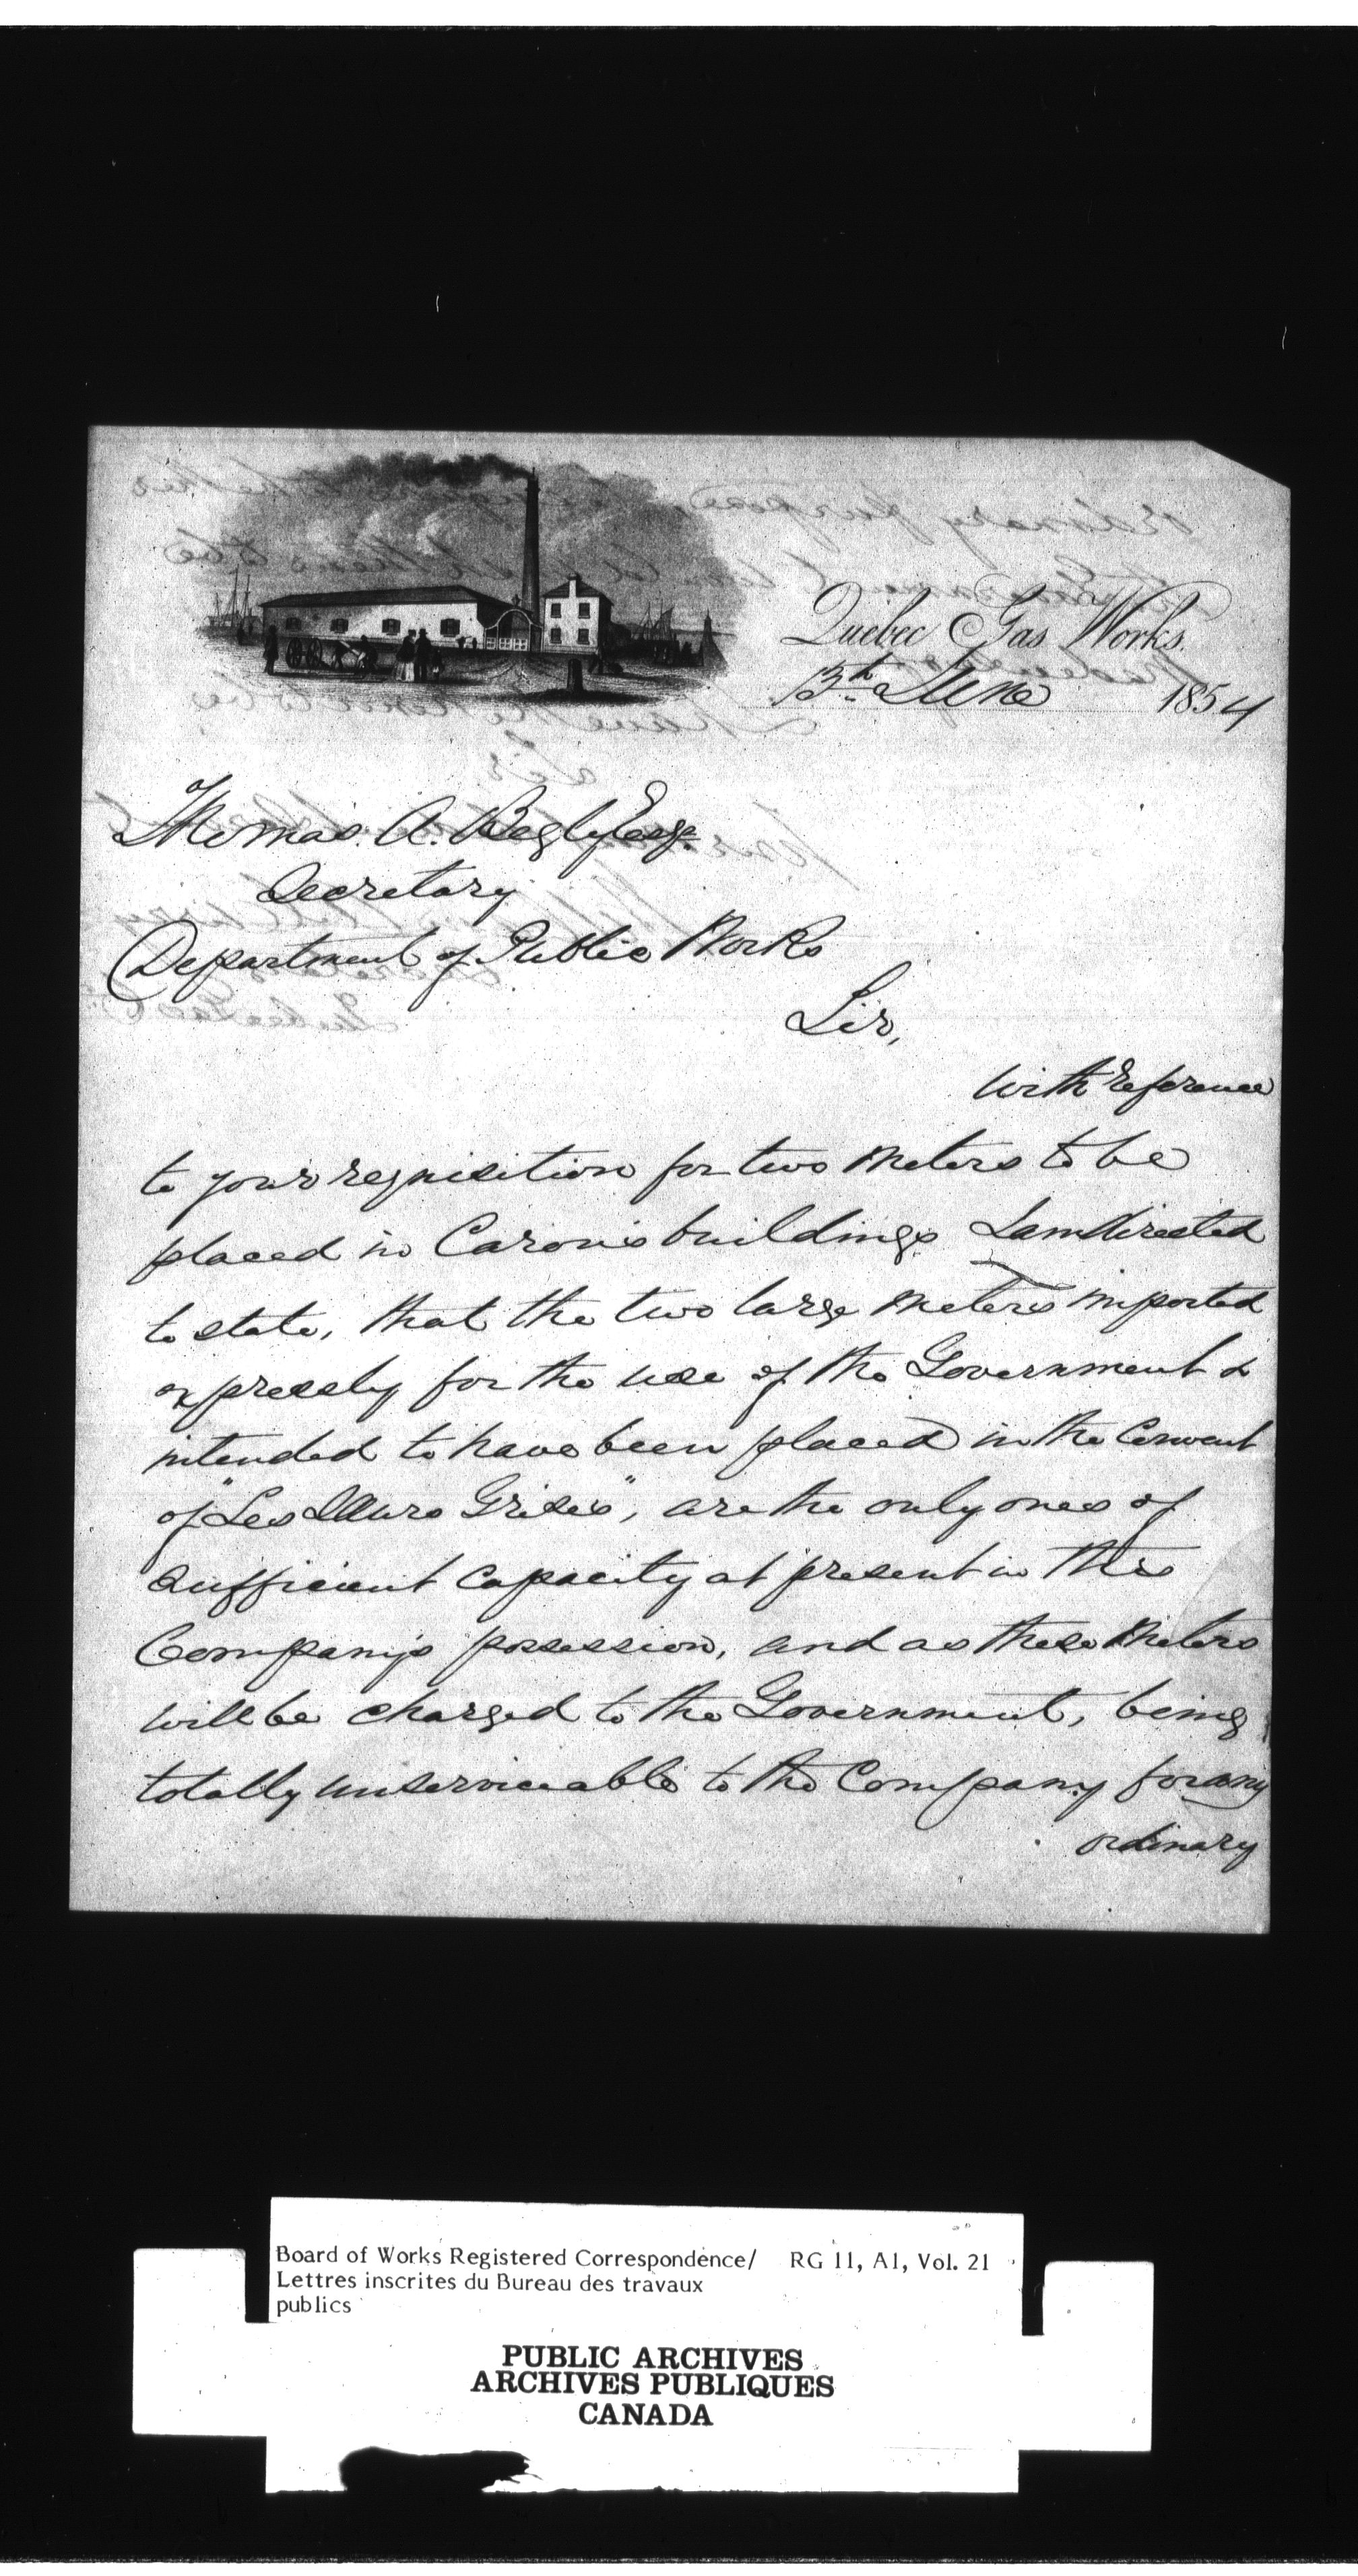 Quebec Gas Works.
13th June 1854
Thomas. A. Begly Esqre
Secretary
Department of Public Works
Sir,
With reference
to your requisition for two meters to be
placed in Caron's buildings I am directed
to state, that the two large meters imported
expressly for the use of the Government &
intended to have been placed in the Convent
of "Les Sœurs Grises", are the only ones of
sufficient capacity at present in this
Company's possession, and as these meters
will be charged to the Government, being
totally unserviceable to the Company for any
ordinary
Board of Works Registered Correspondence/ RG 11, A1, Vol. 21
Lettres inscrites du Bureau des travaux
publics
PUBLIC ARCHIVES
ARCHIVES PUBLIQUES
CANADA